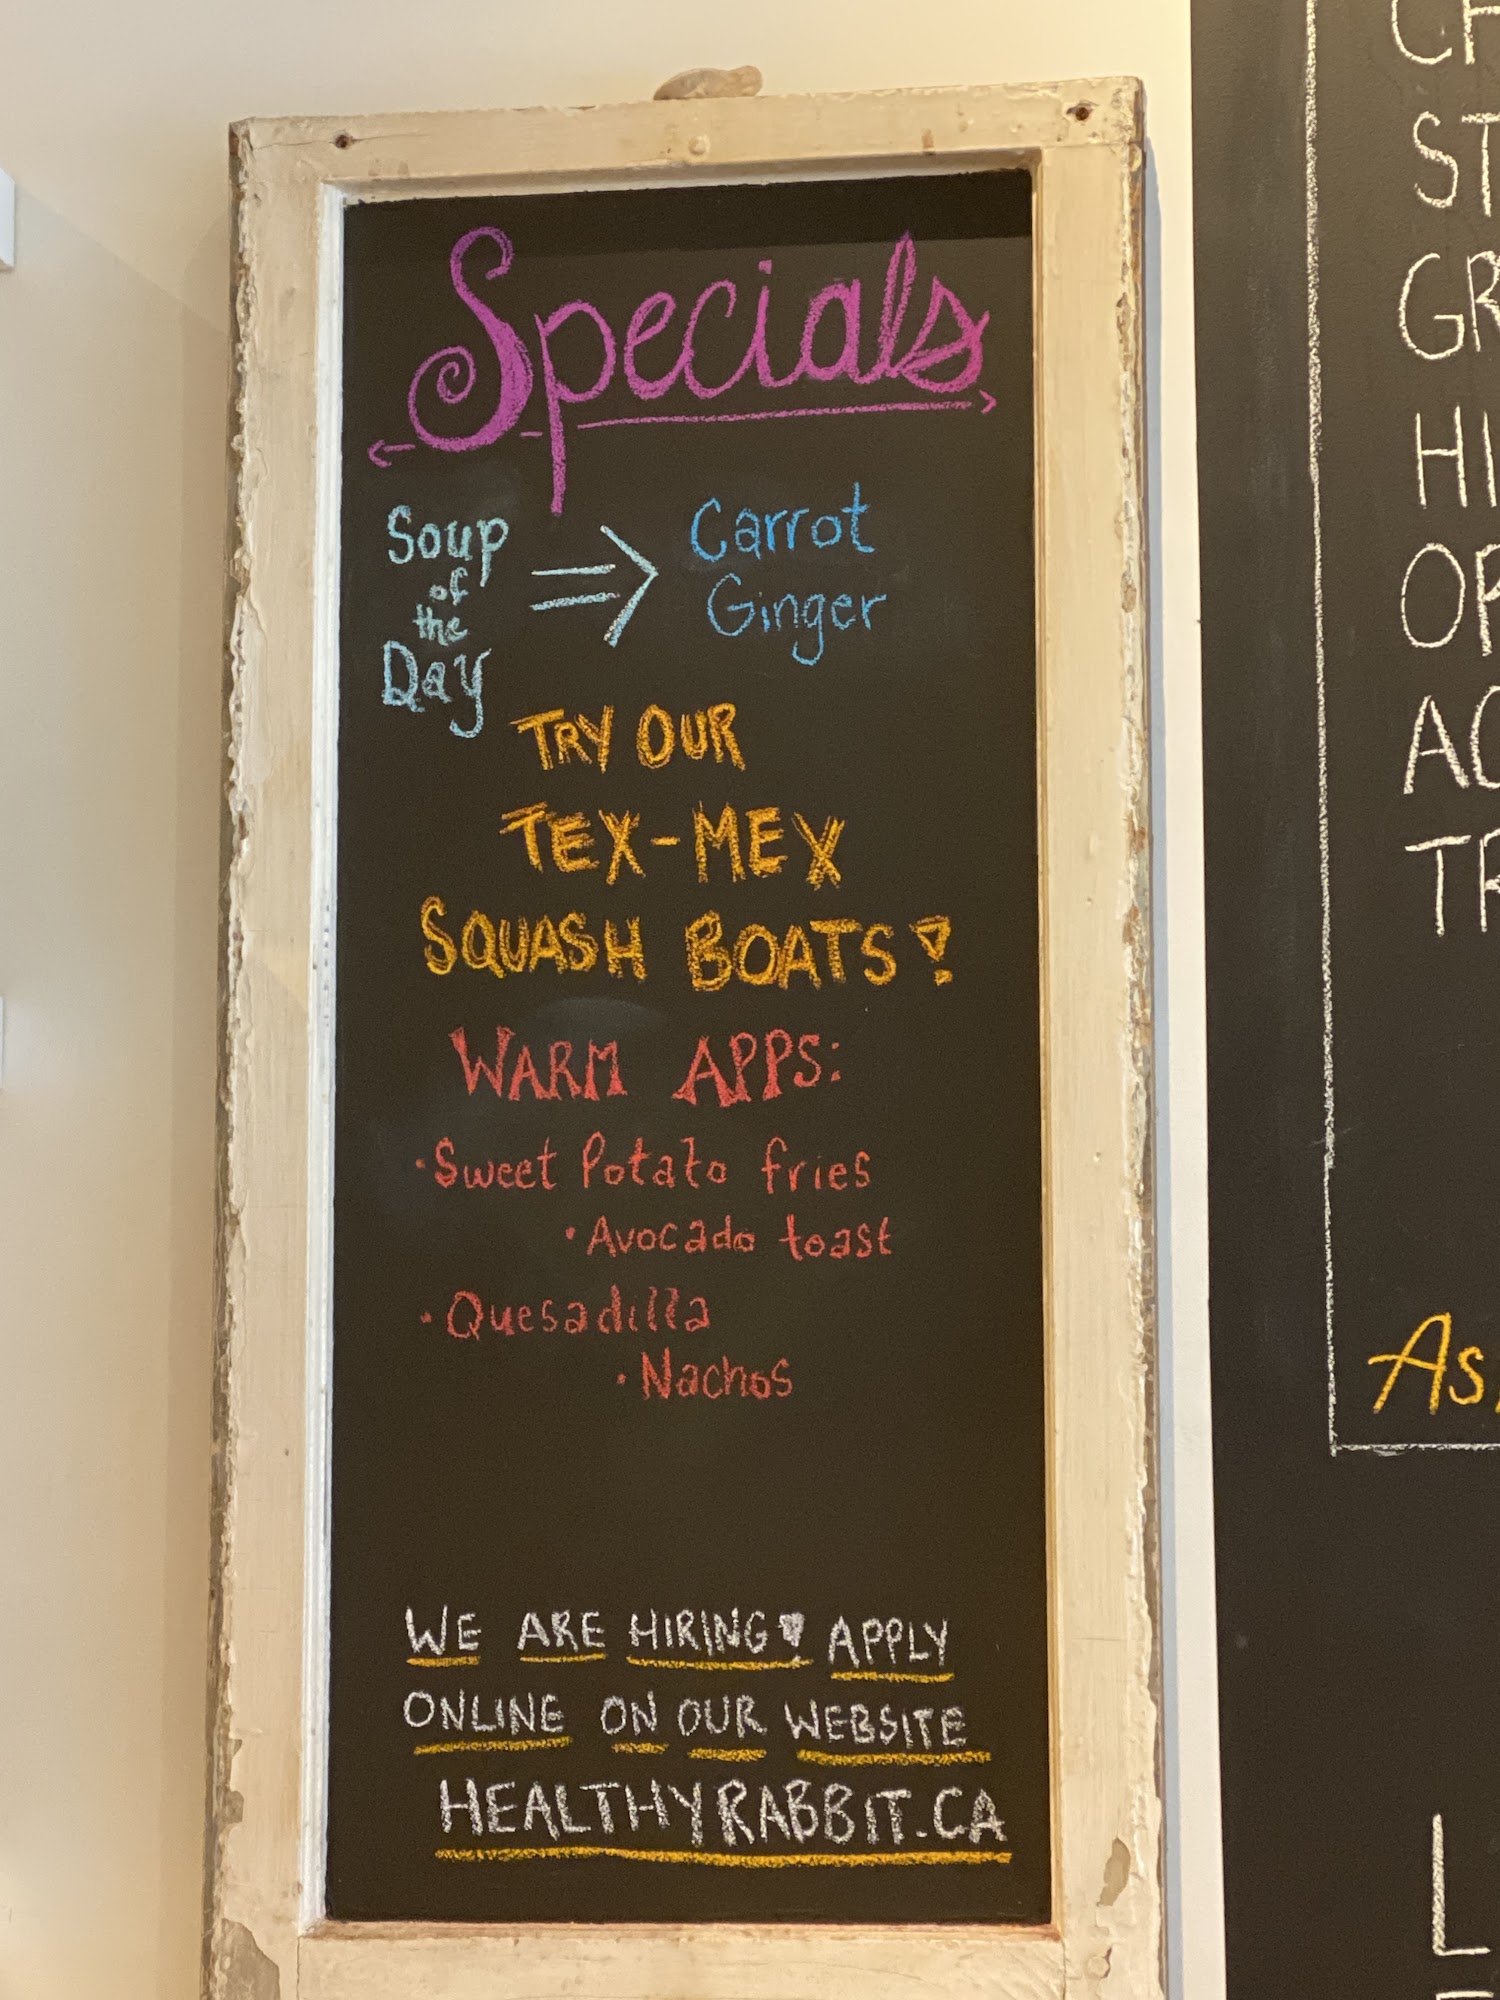 Specials
Soup
of
the
Day
Carrot
Ginger
TRY OUR
TEX-MEX
SQUASH BOATS!
WARM APPS:
·Sweet Potato fries
·Avocado toast
·Quesadilla
·Nachos
WE ARE HIRING! APPLY
ONLINE ON OUR WEBSITE
HEALTHYRABBIT.CA